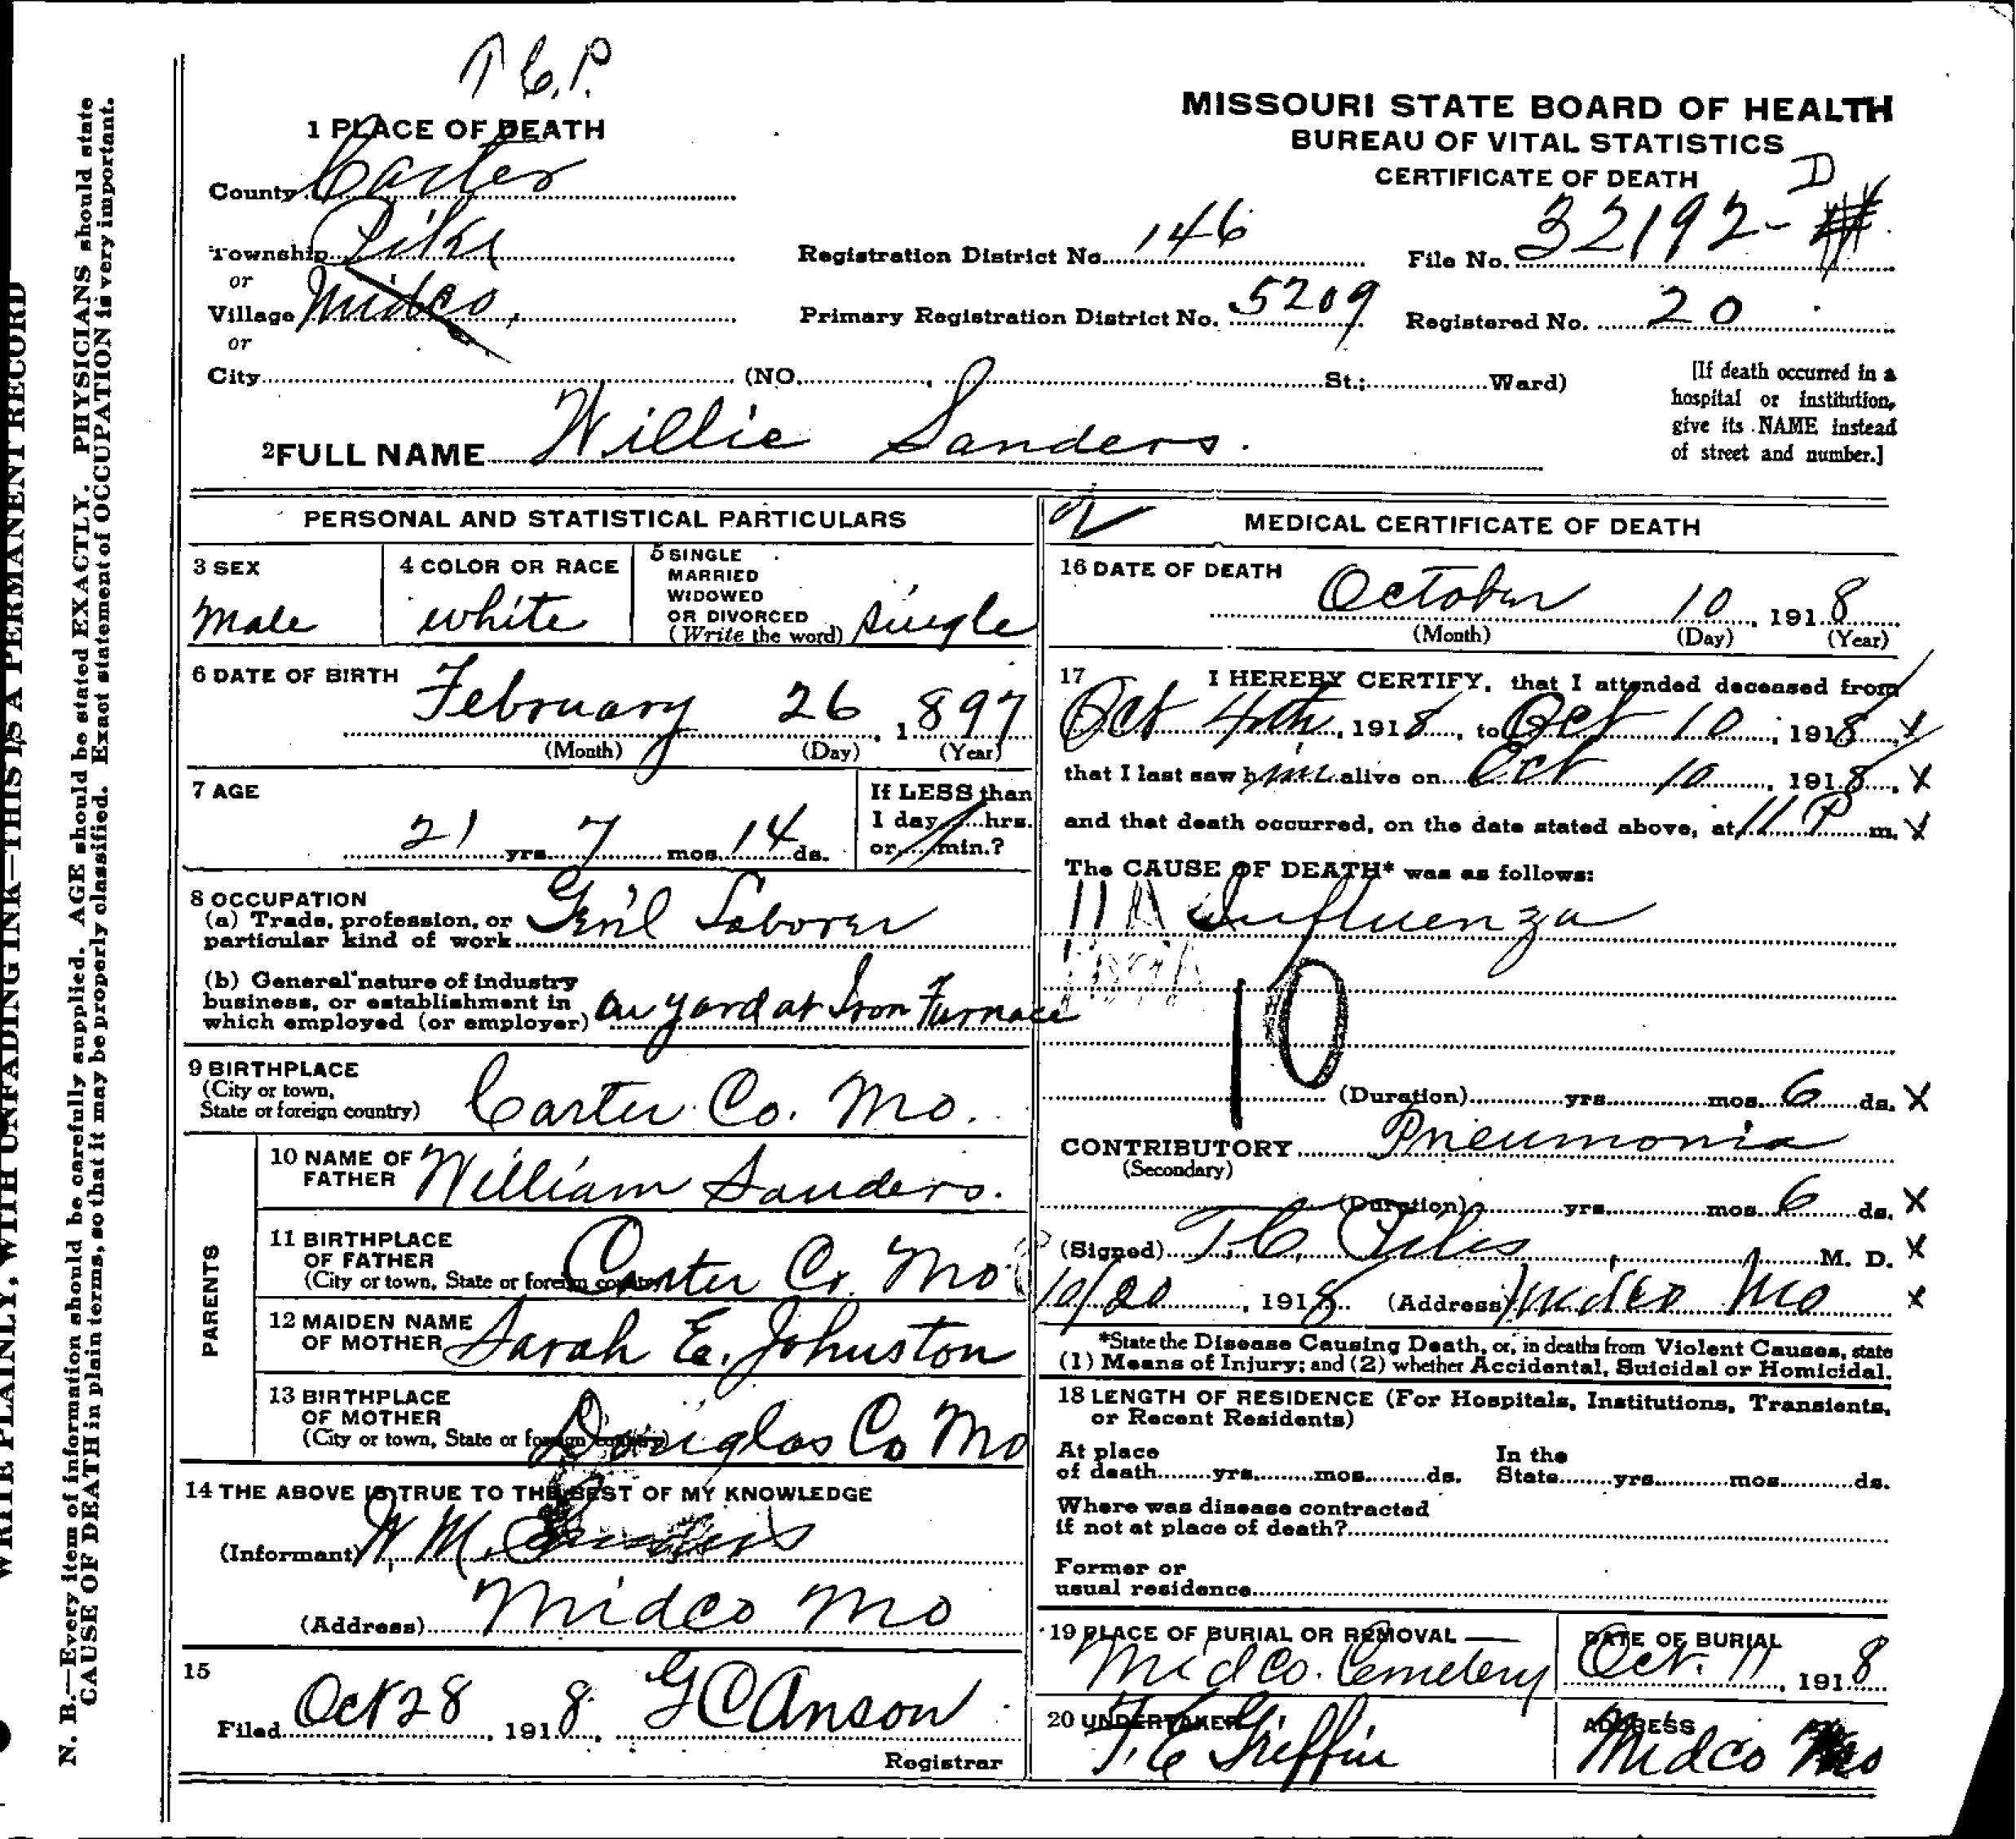 T.C.P.
MISSOURI STATE BOARD OF HEALTH
BUREAU OF VITAL STATISTICS
CERTIFICATE OF DEATH
D
1 PLACE OF DEATH
County Carter
Township Pike
or
Village Midco,
or
City (NO. , St.; Ward)
Registration District No. 146
File No. 32192-
Primary Registration District No. 5209
Registered No. 20
[If death occurred in a
hospital or institution,
give its NAME instead
of street and number.]
2 FULL NAME Willie Sanders.
PERSONAL AND STATISTICAL PARTICULARS
3 SEX
Male
4 COLOR OR RACE
white
5 SINGLE
MARRIED
WIDOWED
OR DIVORCED
(Write the word) single
6 DATE OF BIRTH
February 26, 1897
(Month) (Day) (Year)
7 AGE
21 yrs. 7 mos. 14 ds.
If LESS than
1 day, hrs.
or min.?
8 OCCUPATION
(a) Trade, profession, or
particular kind of work Gen'l Laborer
(b) General nature of industry
business, or establishment in
which employed (or employer) on yard at Iron Furnace
9 BIRTHPLACE
(City or town,
State or foreign country) Carter Co. Mo.
PARENTS
10 NAME OF
FATHER William Sanders.
11 BIRTHPLACE
OF FATHER
(City or town, State or foreign country) Carter Co. Mo
12 MAIDEN NAME
OF MOTHER Sarah E. Johnston
13 BIRTHPLACE
OF MOTHER
(City or town, State or foreign country) Douglas Co Mo
14 THE ABOVE IS TRUE TO THE BEST OF MY KNOWLEDGE
(Informant) W. M. Sanders
(Address) Midco Mo
15
Filed Oct 28, 1918, G C Anson
Registrar
2
MEDICAL CERTIFICATE OF DEATH
16 DATE OF DEATH
October 10, 1918
(Month) (Day) (Year)
17 I HEREBY CERTIFY, that I attended deceased from
Oct 4th, 1918, to Oct 10, 1918, X
that I last saw him alive on Oct 10, 1918, X
and that death occurred, on the date stated above, at 11 P m. X
The CAUSE OF DEATH* was as follows:
11 A Influenza
10
(Duration) yrs. mos. 6 ds. X
CONTRIBUTORY Pneumonia
(Secondary)
(Duration) yrs. mos. 6 ds. X
(Signed) T. C. , M. D. X
10/20, 1918. (Address) Midco Mo X
*State the Disease Causing Death, or, in deaths from Violent Causes, state
(1) Means of Injury; and (2) whether Accidental, Suicidal or Homicidal.
18 LENGTH OF RESIDENCE (For Hospitals, Institutions, Transients,
or Recent Residents)
At place
of death yrs. mos. ds.
In the
State yrs. mos. ds.
Where was disease contracted
if not at place of death?
Former or
usual residence
19 PLACE OF BURIAL OR REMOVAL
Midco. Cemetery
DATE OF BURIAL
Oct. 11, 1918
20 UNDERTAKER
T. C Griffin
ADDRESS
Midco Mo
WRITE PLAINLY, WITH UNFADING INK—THIS IS A PERMANENT RECORD
N. B.—Every item of information should be carefully supplied. AGE should be stated EXACTLY. PHYSICIANS should state
CAUSE OF DEATH in plain terms, so that it may be properly classified. Exact statement of OCCUPATION is very important.